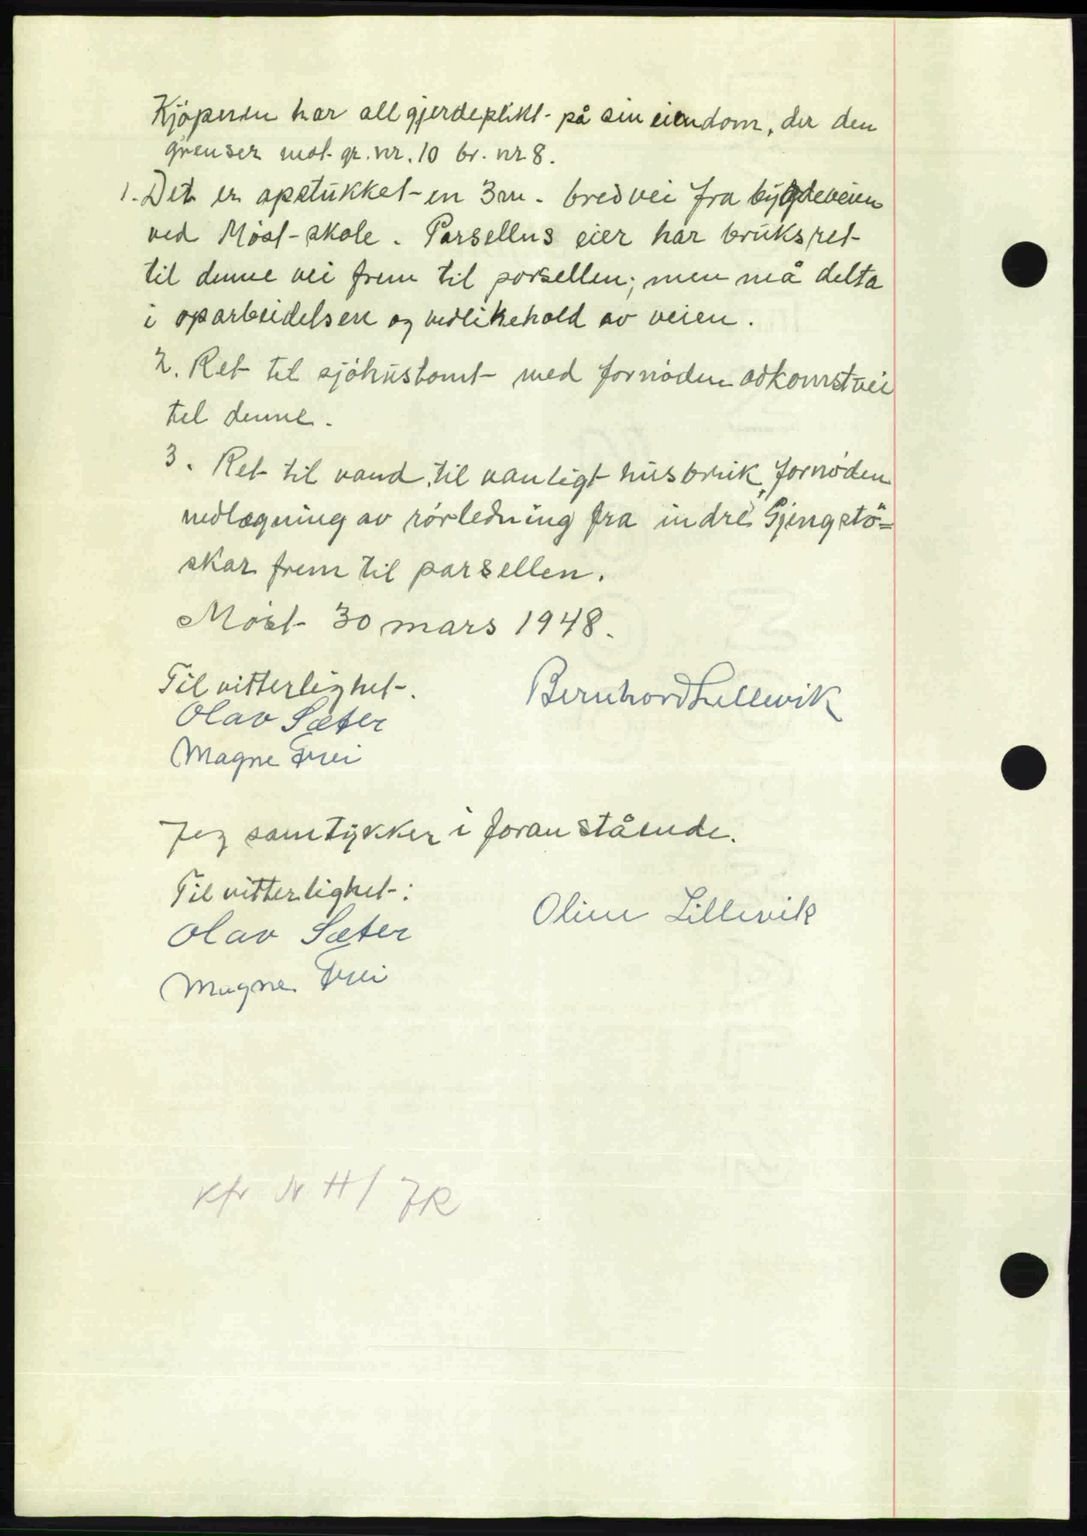 Kjöperen har all gjerdeplikt på sin eiendom, der den
grenser mot gr. nr. 10 br. nr 8.
1. Det er opstukket en 3 m. bred vei fra bygdeveien
ved Möst-skole. Parsellens eier har bruksret
til denne vei frem til parsellen; men må delta
i oparbeidelsen og vedlikehold av veien.
2. Ret til sjöhustomt med fornöden adkomstvei
til denne.
3. Ret til vand, til vanligt husbruk, fornöden
nedlægning av rörledning fra indre Gjengstö=
skar frem til parsellen.
Möst 30 mars 1948.
Til vitterlighet.
Bernhard Lillevik
Olav Sæter
Magne Frei
Jeg samtykker i foranstående.
Til vitterlighet:
Oline Lillevik
Olav Sæter
Magne Frei
Kfr N H / JR